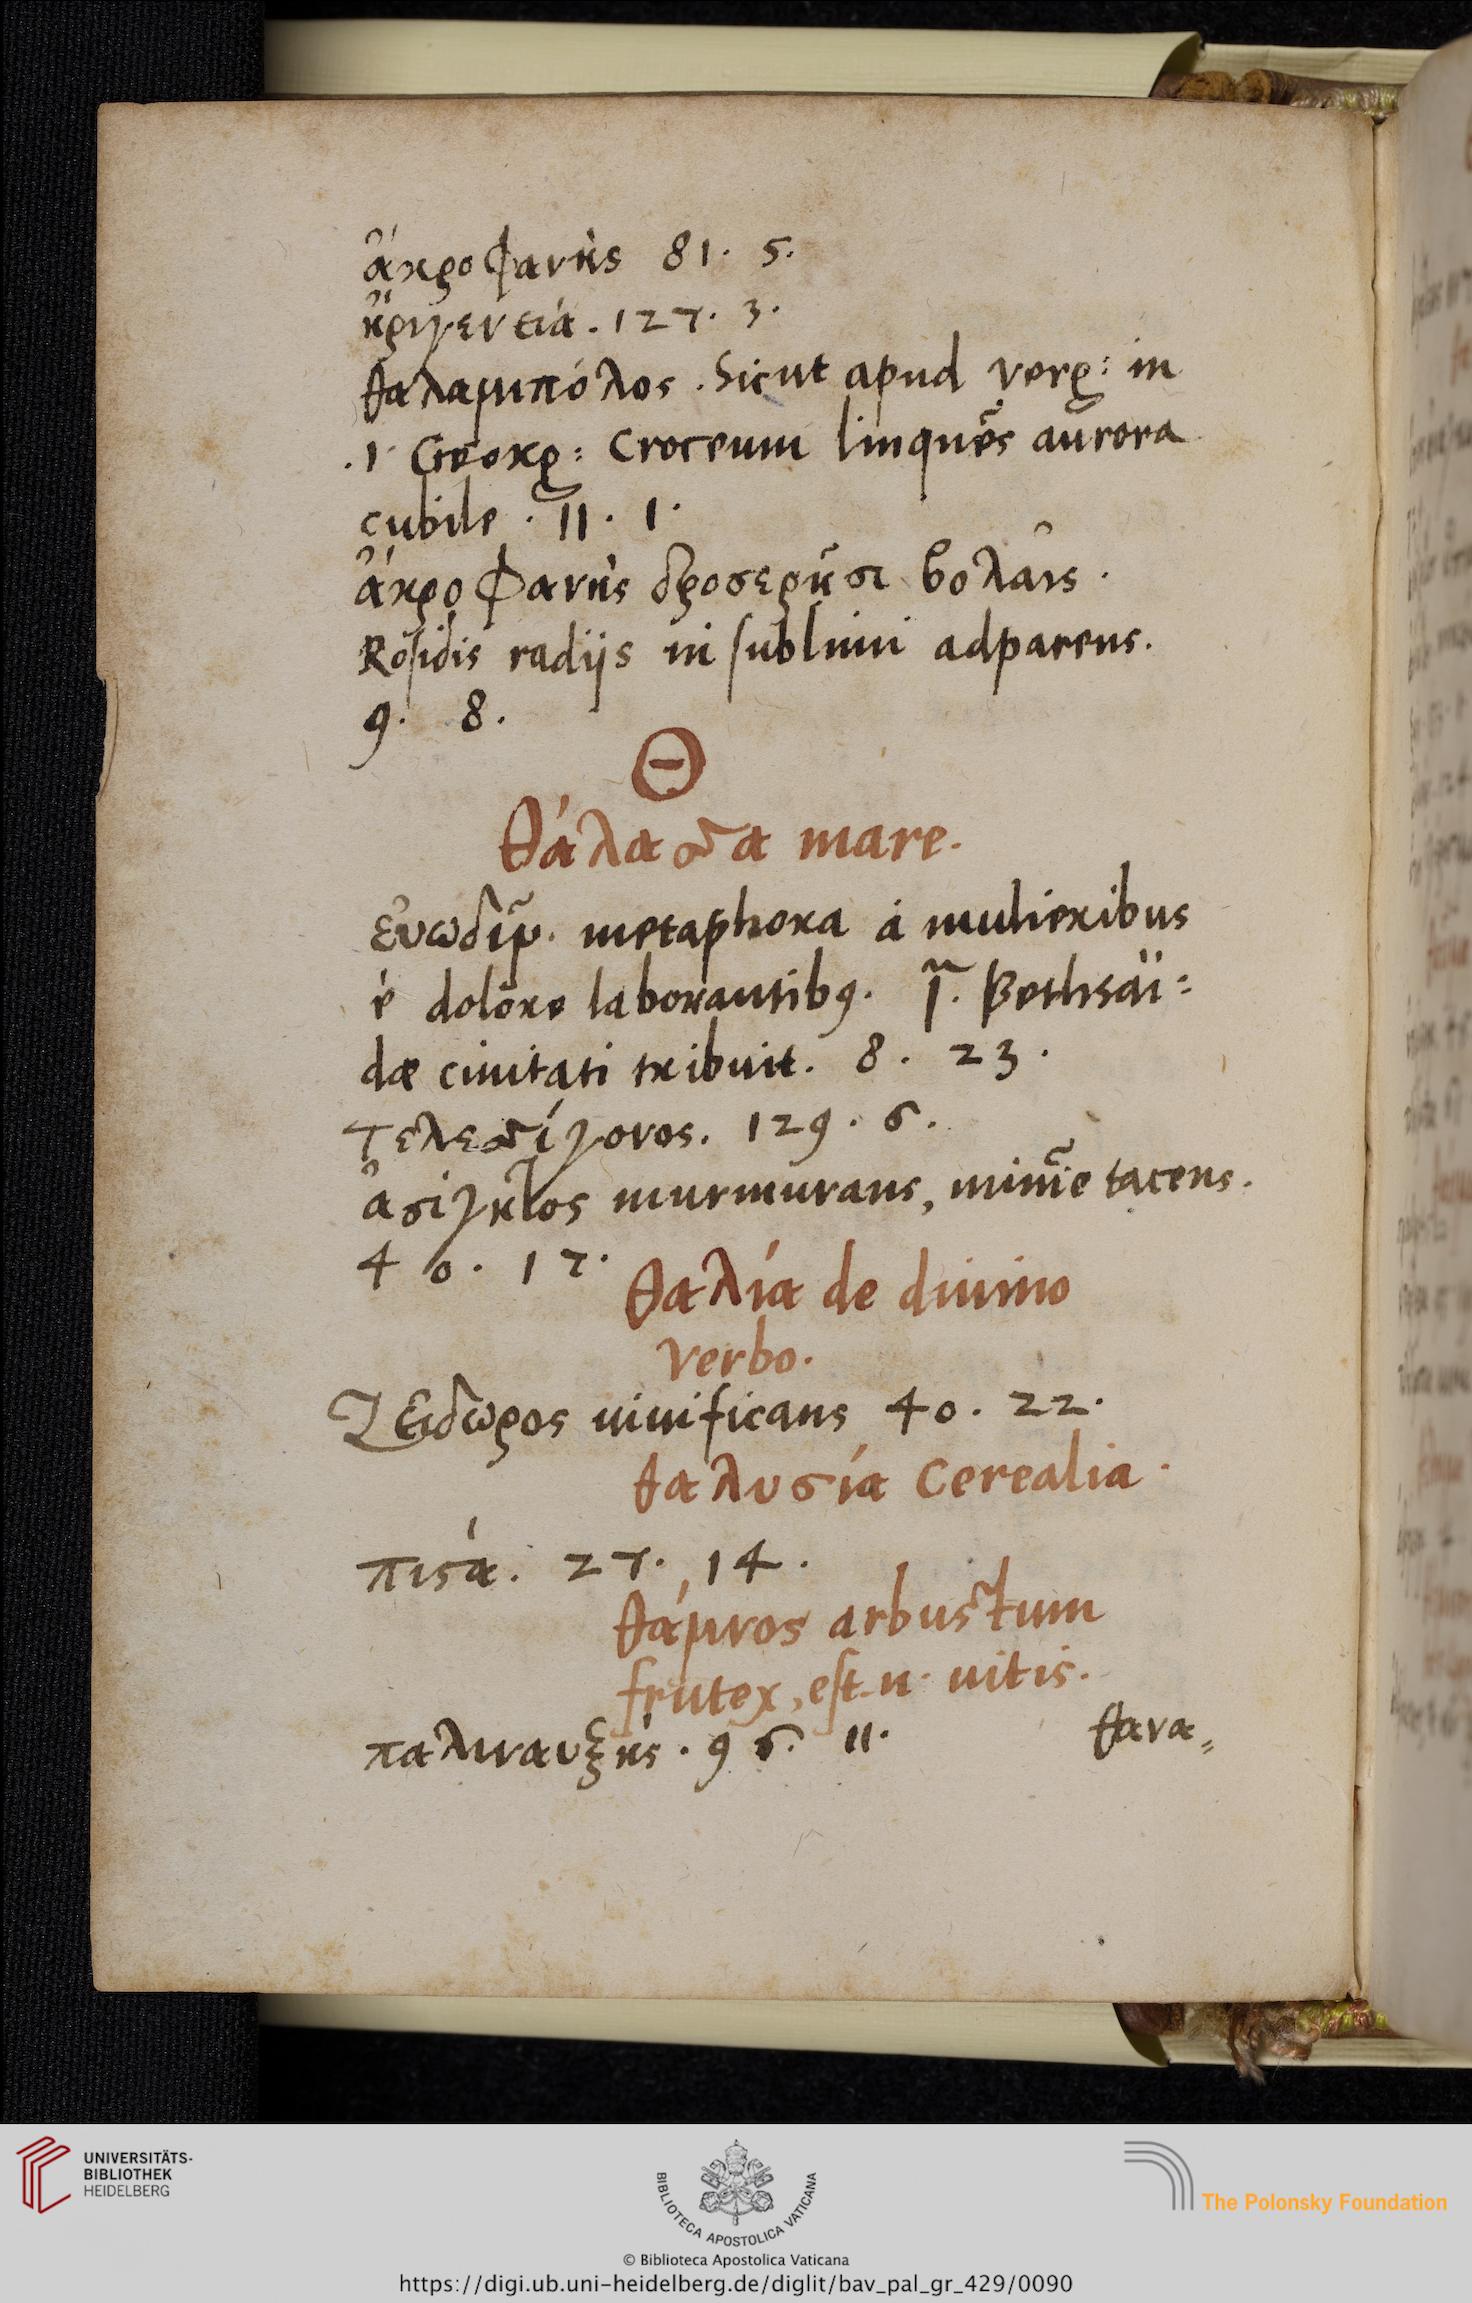 ἀκροφανὴς 81. 5.
ἠριγενειά. 127. 3.
θαλαμιπόλος. Sicut apud verg: in
.1 Georg: Croceum linquẽs aurora
cubile. 11. 1.
ἀκροφανὴς δροσερῇσι βολαῖς.
Rosidis radijs in sublimi adparens.
9. 8.
Θ
θάλασσα mare.
εὐωδιν. metaphora á mulieribus
é dolore laborantibꝰ. Bethsäi=
dæ ciuitati tribuit. 8. 23.
Τελεσσίγονος. 129. 6.
ἀσίγητος murmurans, minime tacens.
40. 17.
θαλία de diuino
verbo.
Ζείδωρος uiuificans 40. 22.
θαλυσία Cerealia.
πιστά. 27. 14.
θάμνος arbustum
frutex, est. n. uitis.
παλιναυξὴς. 96. 11.
θανα=
UNIVERSITÄTS-
BIBLIOTHEK
HEIDELBERG
BIBLIOTECA APOSTOLICA VATICANA
© Biblioteca Apostolica Vaticana
The Polonsky Foundation
https://digi.ub.uni-heidelberg.de/diglit/bav_pal_gr_429/0090